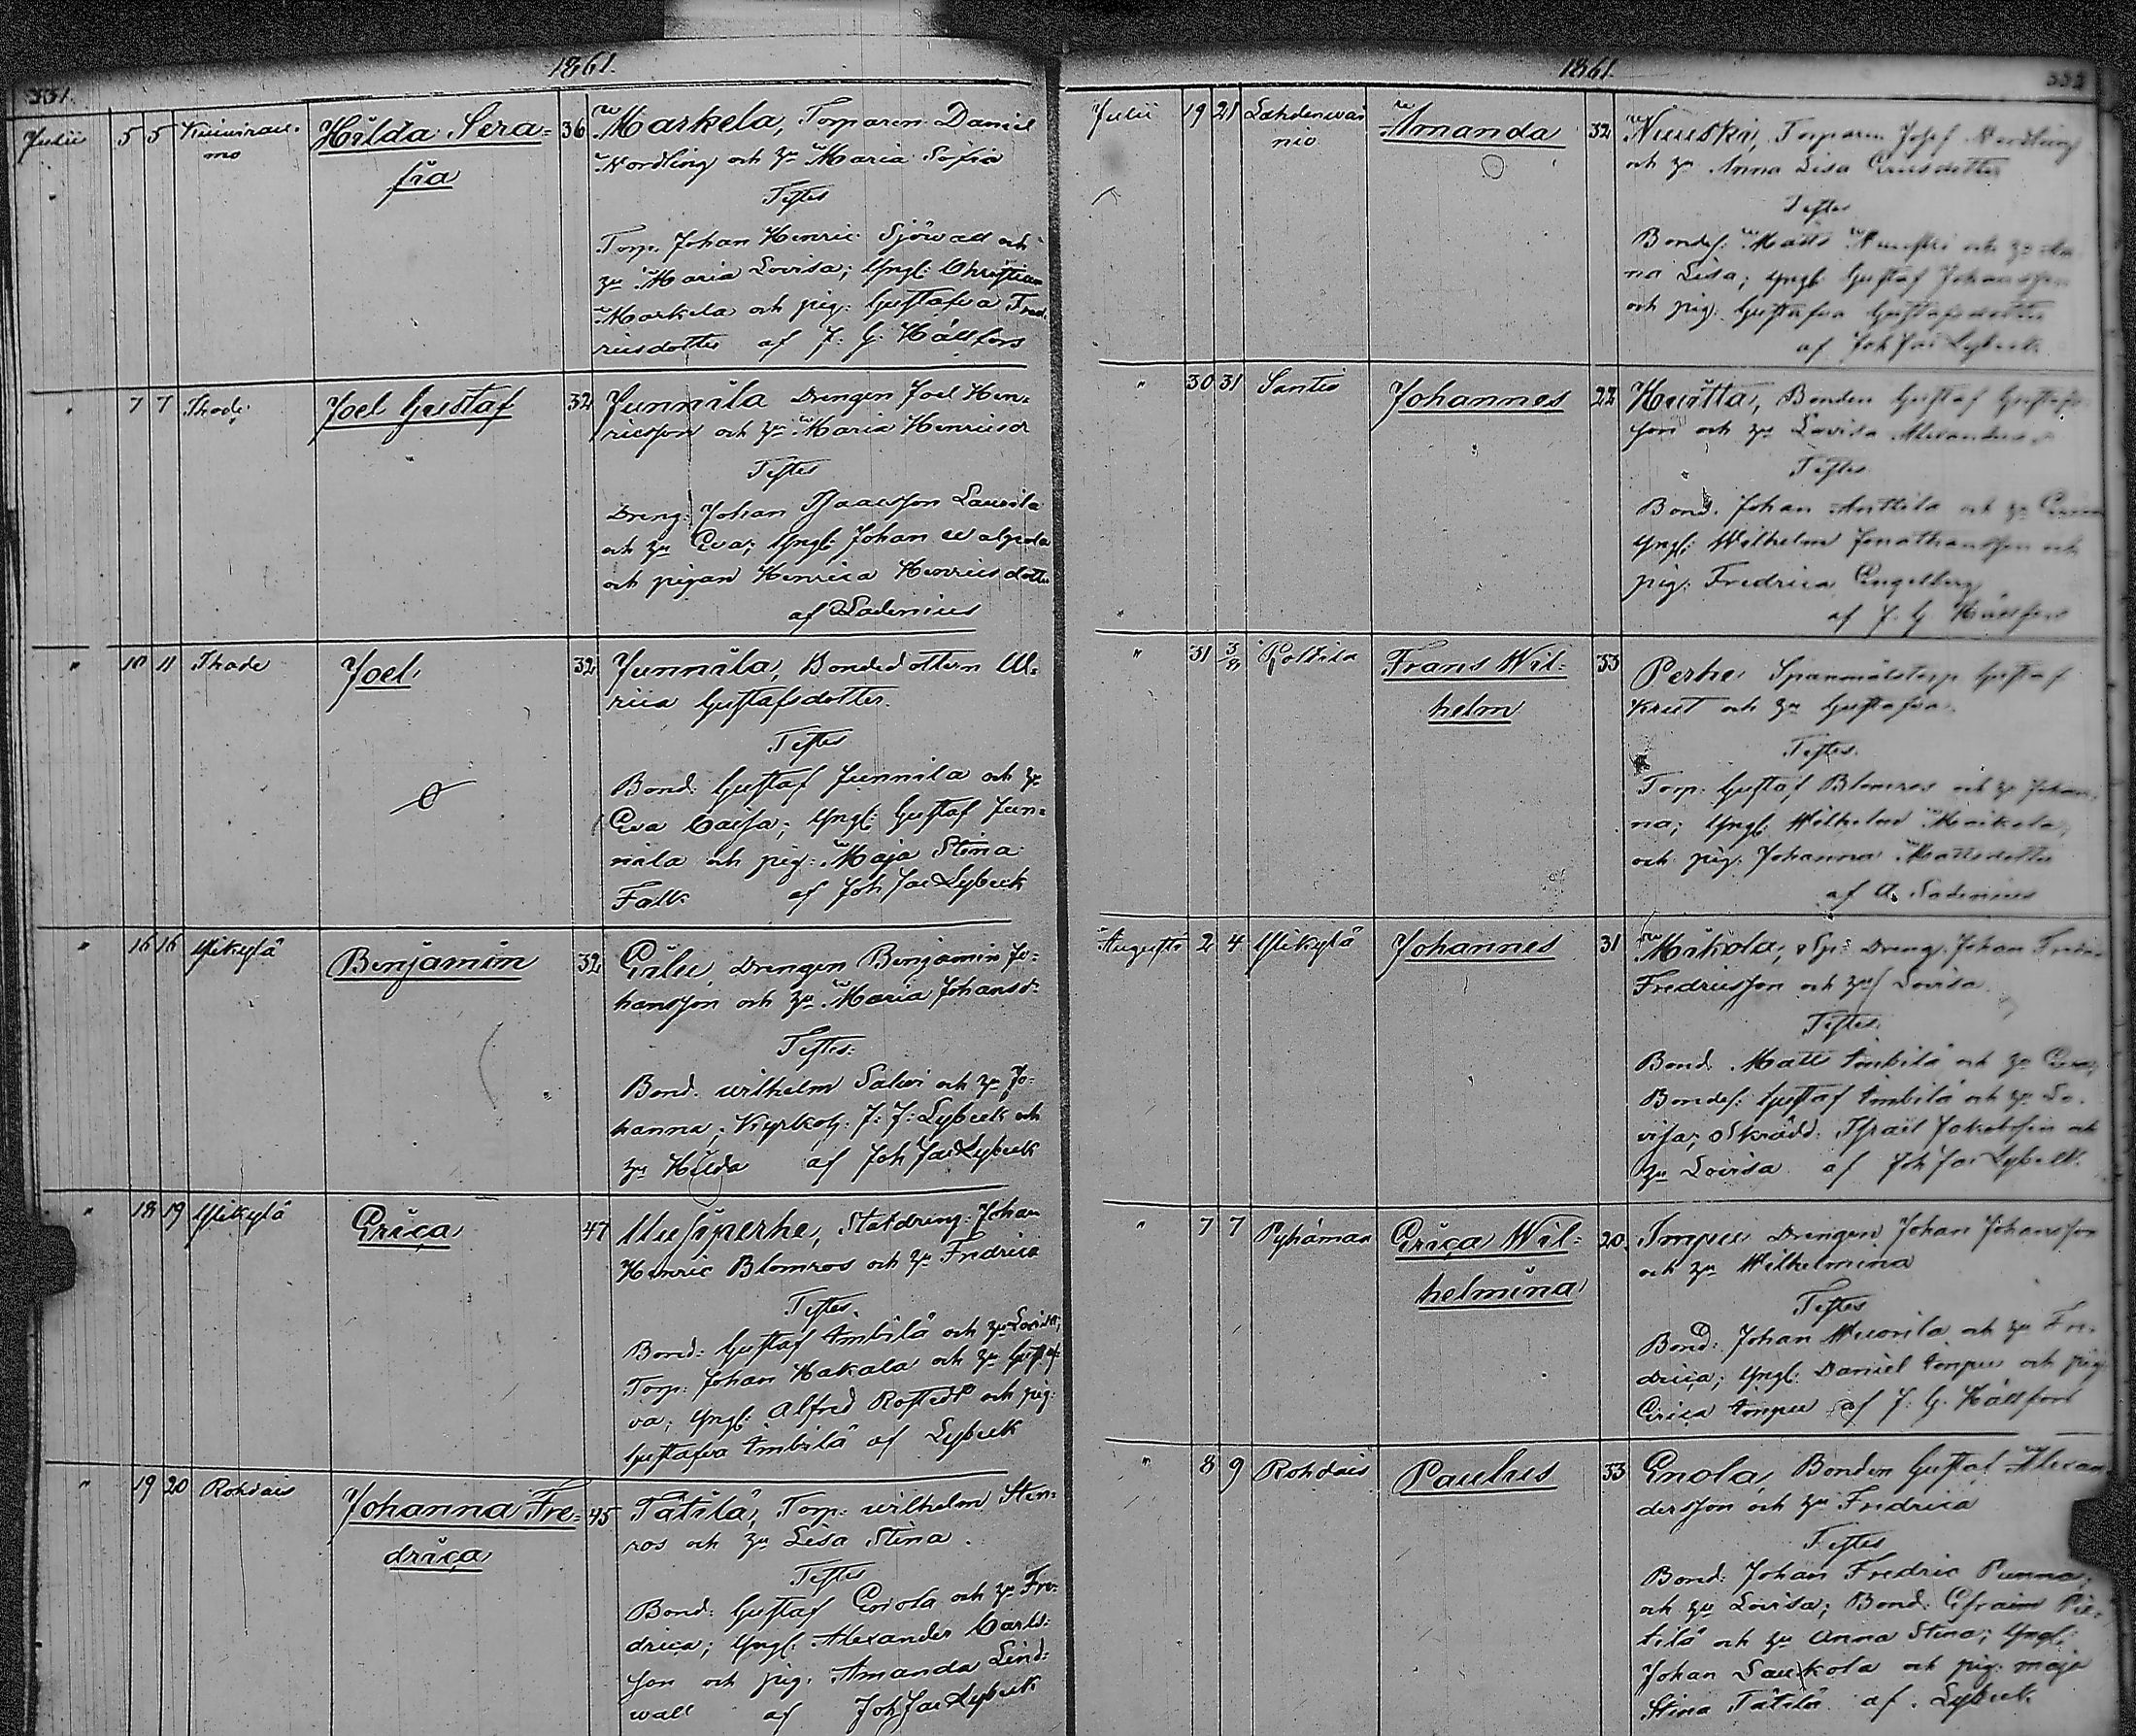 331.
1861.
Julii 5 5 Kuiwirau-
mo
Hilda Sera-
fia
36 Markela, Torparen Daniel
Nordling och hu Maria Sofia
Testes
Torp. Johan Henric Sjöwall och
hu Maria Lovisa; Yngl: Christian
Markela och pig: Gustafva Fred-
ricsdotter af J. G. Hällfors
" 7 7 Ihode
Joel Gustaf
32 Junnila Drengen Joel Hen-
ricsson och hu Maria Henricsd
Testes
Dreng: Johan Isaacsson Laurila
och hu Eva; Yngl: Johan
och pigan Henrica Henricsdotter
af Sadenius
" 10 11 Ihode
Joel
32 Junnila, Bondedottern Ul-
rica Gustafsdotter.
Testes
Bond. Gustaf Junnila och hu
Eva Caisa; Yngl: Gustaf Jun-
nila och pig: Maja Stina
Falk af Joh Jac Lybeck
" 16 16 Ylikylä
Benjamin
32 Eilu, Drengen Benjamin Jo-
hansson och hu Maria Johansdr
Testes:
Bond. Wilhelm Salvi och hu Jo-
hanna; Kyrkoh: J: J: Lybeck och
hu Hilda af Joh Jac Lybeck
" 18 19 Ylikylä
Erica
47 Uusiperhe, Statdreng: Johan
Henric Blomros och hu Fredrica
Testes.
Bond: Gustaf Imbilä och hu Lovisa;
Torp: Johan Hakala och hu Gustaf-
va; Yngl: Alfred Rostedt och pig:
Gustafva Imbilä af Lybeck
" 19 20 Rohdais
Johanna Fre-
drica
45 Tätilä, Torp: Wilhelm Sten-
ros och hu Lisa Stina.
Testes
Bond: Gustaf Enola och hu Fre-
drica; Yngl: Alexander Carls-
son och pig: Amanda Lind-
wall af Joh Jac Lybeck
1861.
332
Julii 19 21 Lahdenwai
nio
Amanda
32 Nuuski, Torparen Josef Nordling
och hu Anna Lisa Ericsdotter
Testes
Bondes: Matts Nuuski och hu An-
na Lisa; Yngl: Gustaf Johansson
och pig: Gustafva Gustafsdotter
af Joh Jac Lybeck
" 30 31 Santio
Johannes
22 Heritta, Bonden Gustaf Gustafs-
son och hu Lovisa Alexandersd
Testes
Bond. Johan Anttila och hu
Yngl: Wilhelm Jonathansson och
pig: Fredrica Engelberg
af J. G. Hällfors
" 31 3/8 Koltila
Frans Wil-
helm
33 Perhe Spanmålstorp Gustaf
Krut och hu Gustafva.
Testes.
Torp: Gustaf Blomros och hu Johan-
na; Yngl: Wilhelm Maikola,
och pig: Johanna Mattsdotter
af A. Sadenius
Augusti 2 4 Ylikylä
Johannes
31 Mikola, Dreng. Johan
Fredricsson och hu Lovisa
Testes.
Bond. Matts Imbilä och hu Eva;
Bondes: Gustaf Imbilä och hu Lo-
visa; Skrädd: Israel Jakobsson och
hu Lovisa af Joh Jac Lybeck.
" 7 7 Pyhämaa
Erica Wil-
helmina
20. Impu Drengen Johan Johansson
och hu Wilhelmina
Testes
Bond: Johan Wuorila och hu Fre-
drica; Yngl: Daniel Impu och pig
Erica Impu af J. G. Hällfors
" 8 9 Rohdais
Paulus
33 Enola, Bonden Gustaf Alexan-
dersson och hu Fredrica
Testes
Bond: Johan Fredric Punna,
och hu Lovisa; Bond: Efraim Pie-
tilä och hu Anna Stina; Yngl:
Johan Laukola och pig: Maja
Stina Tätilä af. Lybeck